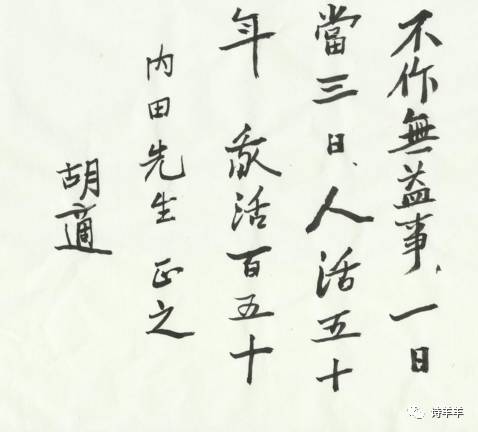 不作無益事、一日
當三日、人活五十
年 我活百五十
內田先生 正之
胡適
诗羊羊